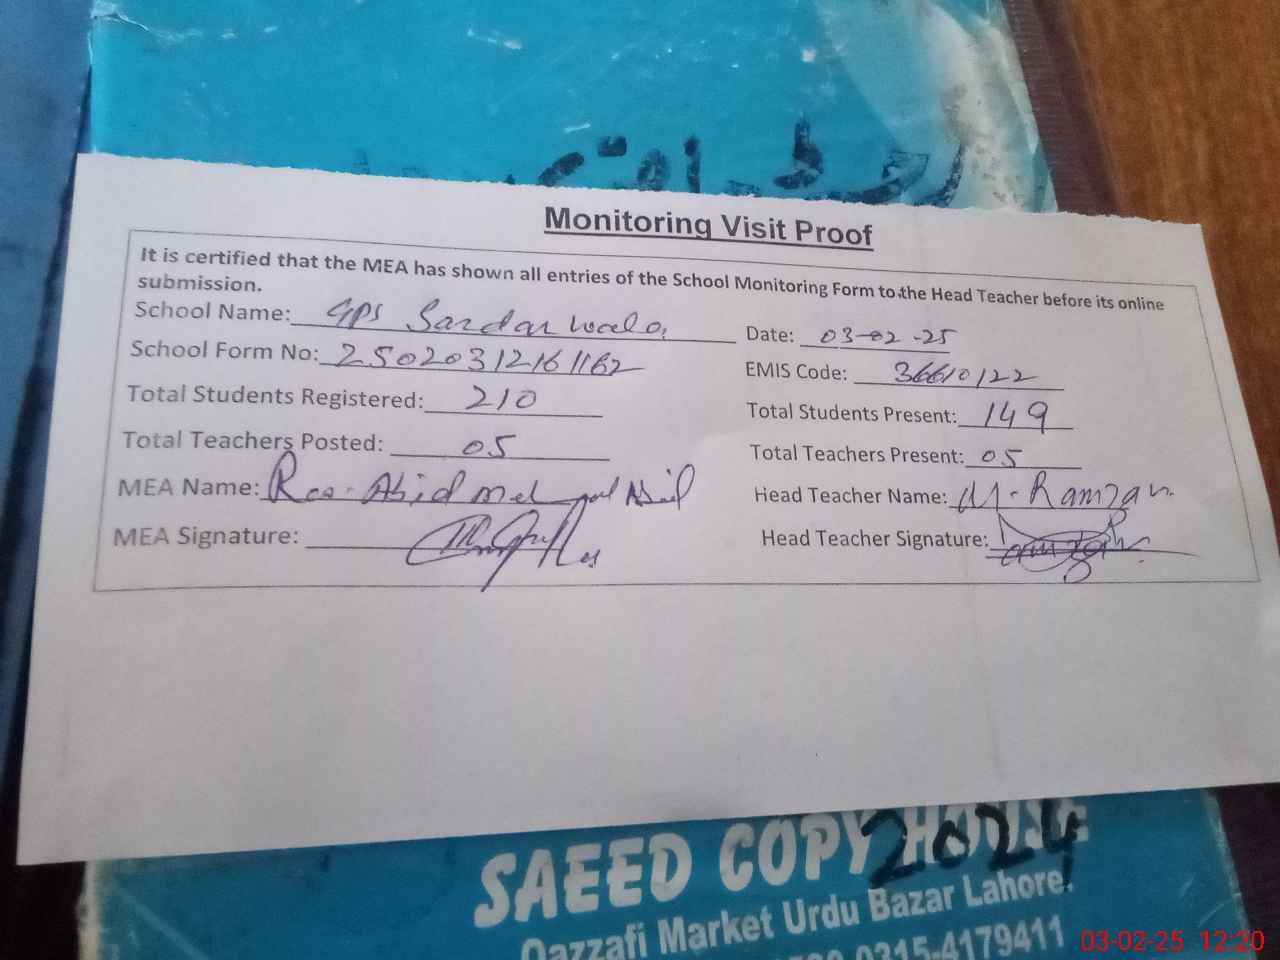 Monitoring Visit Proof
It is certified that the MEA has shown all entries of the School Monitoring Form to the Head Teacher before its online
submission.
School Name: GPS Sardar wala
Date: 03-02-25
School Form No: 25020312161162
EMIS Code: 36610122
Total Students Registered: 210
Total Students Present: 149
Total Teachers Posted: 05
Total Teachers Present: 05
MEA Name: Rao Abid
Head Teacher Name: M. Ramzan
MEA Signature:
Head Teacher Signature:
SAEED COPY HOUSE
2024
Qazzafi Market Urdu Bazar Lahore.
0315-4179411
03-02-25 12:20